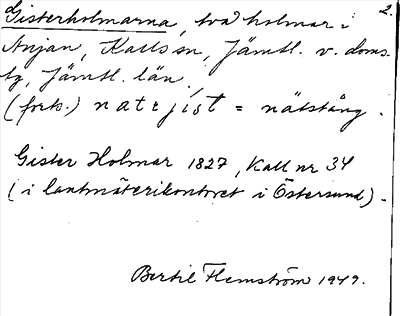 2.
Gisterholmarna, två holmar i
Anjan, Kalls sn, Jämtl. v. doms-
tg, Jämtl. län.
(forts.) natsjist = nätstång.
Gister Holmar 1827, Kall nr 34
(i lantmäterikontoret i Östersund).
Bertil Flemström 1949.